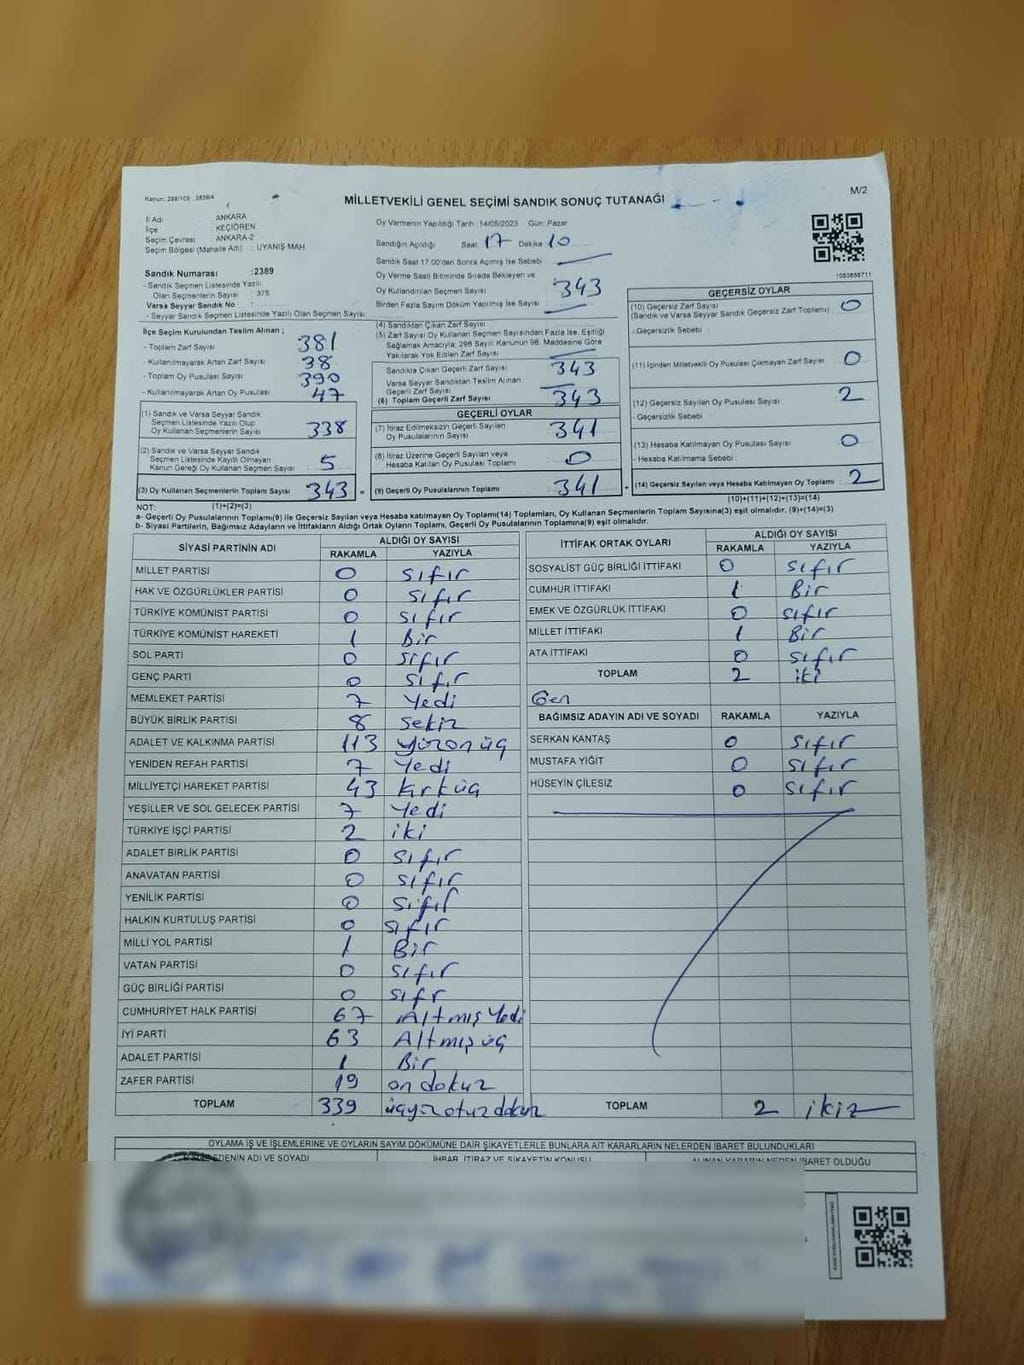 Kanun: 298/105 , 2839/4
MİLLETVEKİLİ GENEL SEÇİMİ SANDIK SONUÇ TUTANAĞI
M/2
İl Adı : ANKARA
İlçe : KEÇİÖREN
Seçim Çevresi : ANKARA-2
Seçim Bölgesi (Mahalle Adı) : UYANIŞ MAH
Sandık Numarası :2389
- Sandık Seçmen Listesinde Yazılı
Olan Seçmenlerin Sayısı : 375
Varsa Seyyar Sandık No :
- Seyyar Sandık Seçmen Listesinde Yazılı Olan Seçmen Sayısı:
Oy Vermenin Yapıldığı Tarih :14/05/2023 Gün: Pazar
Sandığın Açıldığı Saat: 17 Dakika: 10
Sandık Saat 17:00'den Sonra Açılmış İse Sebebi :
Oy Verme Saati Bitiminde Sırada Bekleyen ve
Oy Kullandırılan Seçmen Sayısı : 343
Birden Fazla Sayım Döküm Yapılmış İse Sayısı :
1083698711
İlçe Seçim Kurulundan Teslim Alınan ;
- Toplam Zarf Sayısı : 381
- Kullanılmayarak Artan Zarf Sayısı : 38
- Toplam Oy Pusulası Sayısı : 390
- Kullanılmayarak Artan Oy Pusulası : 47
(1) Sandık ve Varsa Seyyar Sandık
Seçmen Listesinde Yazılı Olup
Oy Kullanan Seçmenlerin Sayısı : 338
(2) Sandık ve Varsa Seyyar Sandık
Seçmen Listesinde Kayıtlı Olmayan
Kanun Gereği Oy Kullanan Seçmen Sayısı : 5
(3) Oy Kullanan Seçmenlerin Toplam Sayısı : 343 =
(4) Sandıktan Çıkan Zarf Sayısı
(5) Zarf Sayısı Oy Kullanan Seçmen Sayısından Fazla İse, Eşitliği
Sağlamak Amacıyla; 298 Sayılı Kanunun 98. Maddesine Göre
Yakılarak Yok Edilen Zarf Sayısı :
Sandıkta Çıkan Geçerli Zarf Sayısı : 343
Varsa Seyyar Sandıktan Teslim Alınan
Geçerli Zarf Sayısı :
(6) Toplam Geçerli Zarf Sayısı : 343
GEÇERLİ OYLAR
(7) İtiraz Edilmeksizin Geçerli Sayılan
Oy Pusulalarının Sayısı : 341
(8) İtiraz Üzerine Geçerli Sayılan veya
Hesaba Katılan Oy Pusulası Toplamı : 0
(9) Geçerli Oy Pusulalarının Toplamı : 341 +
GEÇERSİZ OYLAR
(10) Geçersiz Zarf Sayısı
(Sandık ve Varsa Seyyar Sandık Geçersiz Zarf Toplamı) : 0
-Geçersizlik Sebebi :
(11) İçinden Milletvekili Oy Pusulası Çıkmayan Zarf Sayısı : 0
(12) Geçersiz Sayılan Oy Pusulası Sayısı : 2
- Geçersizlik Sebebi :
(13) Hesaba Katılmayan Oy Pusulası Sayısı : 0
- Hesaba Katılmama Sebebi :
(14) Geçersiz Sayılan veya Hesaba Katılmayan Oy Toplamı : 2
NOT: (1)+(2)=(3)
(10)+(11)+(12)+(13)=(14)
a- Geçerli Oy Pusulalarının Toplamı(9) ile Geçersiz Sayılan veya Hesaba katılmayan Oy Toplamı(14) Toplamları, Oy Kullanan Seçmenlerin Toplam Sayısına(3) eşit olmalıdır. (9)+(14)=(3)
b- Siyasi Partilerin, Bağımsız Adayların ve İttifakların Aldığı Ortak Oyların Toplamı, Geçerli Oy Pusulalarının Toplamına(9) eşit olmalıdır.
SİYASİ PARTİNİN ADI ALDIĞI OY SAYISI
RAKAMLA YAZIYLA
MİLLET PARTİSİ 0 sıfır
HAK VE ÖZGÜRLÜKLER PARTİSİ 0 sıfır
TÜRKİYE KOMÜNİST PARTİSİ 0 sıfır
TÜRKİYE KOMÜNİST HAREKETİ 1 Bir
SOL PARTİ 0 sıfır
GENÇ PARTİ 0 sıfır
MEMLEKET PARTİSİ 7 Yedi
BÜYÜK BİRLİK PARTİSİ 8 sekiz
ADALET VE KALKINMA PARTİSİ 113 yüzonüç
YENİDEN REFAH PARTİSİ 7 Yedi
MİLLİYETÇİ HAREKET PARTİSİ 43 kırküç
YEŞİLLER VE SOL GELECEK PARTİSİ 7 Yedi
TÜRKİYE İŞÇİ PARTİSİ 2 iki
ADALET BİRLİK PARTİSİ 0 sıfır
ANAVATAN PARTİSİ 0 sıfır
YENİLİK PARTİSİ 0 sıfır
HALKIN KURTULUŞ PARTİSİ 0 sıfır
MİLLİ YOL PARTİSİ 1 Bir
VATAN PARTİSİ 0 sıfır
GÜÇ BİRLİĞİ PARTİSİ 0 sıfr
CUMHURİYET HALK PARTİSİ 67 Altmış Yedi
İYİ PARTİ 63 Altmış üç
ADALET PARTİSİ 1 Bir
ZAFER PARTİSİ 19 on dokuz
TOPLAM 339 üçyüzotuzdokuz
İTTİFAK ORTAK OYLARI ALDIĞI OY SAYISI
RAKAMLA YAZIYLA
SOSYALİST GÜÇ BİRLİĞİ İTTİFAKI 0 sıfır
CUMHUR İTTİFAKI 1 Bir
EMEK VE ÖZGÜRLÜK İTTİFAKI 0 sıfır
MİLLET İTTİFAKI 1 Bir
ATA İTTİFAKI 0 sıfır
TOPLAM 2 iki
BAĞIMSIZ ADAYIN ADI VE SOYADI RAKAMLA YAZIYLA
SERKAN KANTAŞ 0 sıfır
MUSTAFA YİĞİT 0 sıfır
HÜSEYİN ÇİLESİZ 0 sıfır
TOPLAM 2 iki
OYLAMA İŞ VE İŞLEMLERİNE VE OYLARIN SAYIM DÖKÜMÜNE DAİR ŞİKAYETLERLE BUNLARA AİT KARARLARIN NELERDEN İBARET BULUNDUKLARI
EDENİN ADI VE SOYADI İHBAR, İTİRAZ VE ŞİKAYETİN KONUSU ALINAN KARARIN NEDEN İBARET OLDUĞU